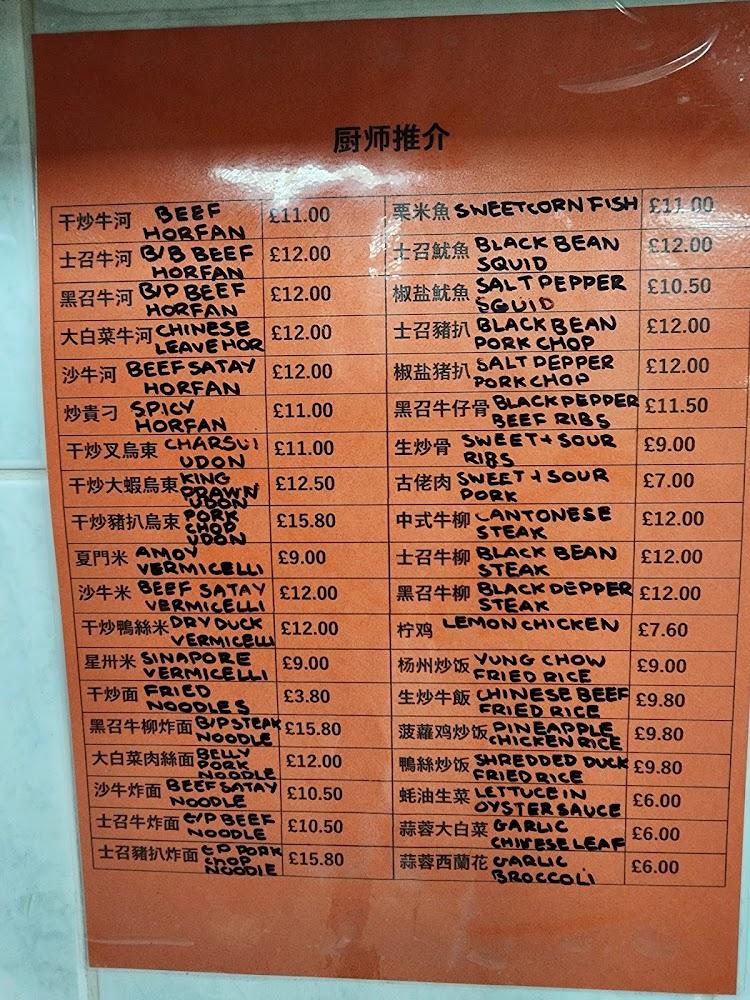 厨师推介
干炒牛河 BEEF HORFAN £11.00
士召牛河 B/B BEEF HORFAN £12.00
黑召牛河 B/P BEEF HORFAN £12.00
大白菜牛河 CHINESE LEAVE HOR £12.00
沙牛河 BEEF SATAY HORFAN £12.00
炒貴刁 SPICY HORFAN £11.00
干炒叉烏東 CHARSUI UDON £11.00
干炒大蝦烏東 KING PRAWN UDON £12.50
干炒豬扒烏東 PORK CHOP UDON £15.80
夏門米 AMOY VERMICELLI £9.00
沙牛米 BEEF SATAY VERMICELLI £12.00
干炒鴨絲米 DRY DUCK VERMICELLI £12.00
星卅米 SINAPORE VERMICELLI £9.00
干炒面 FRIED NOODLES £3.80
黑召牛柳炸面 B/P STEAK NOODLE £15.80
大白菜肉絲面 BELLY PORK NOODLE £12.00
沙牛炸面 BEEF SATAY NOODLE £10.50
士召牛炸面 BEEF NOODLE £10.50
士召豬扒炸面 PORK CHOP NOODLE £15.80
栗米魚 SWEETCORN FISH £11.00
士召魷魚 BLACK BEAN SQUID £12.00
椒盐魷魚 SALT PEPPER SGUID £10.50
士召豬扒 BLACK BEAN PORK CHOP £12.00
椒盐猪扒 SALT PEPPER PORK CHOP £12.00
黑召牛仔骨 BLACK PEPPER BEEF RIBS £11.50
生炒骨 SWEET + SOUR RIBS £9.00
古佬肉 SWEET + SOUR PORK £7.00
中式牛柳 CANTONESE STEAK £12.00
士召牛柳 BLACK BEAN STEAK £12.00
黑召牛柳 BLACK PEPPER STEAK £12.00
柠鸡 LEMON CHICKEN £7.60
杨州炒饭 YUNG CHOW FRIED RICE £9.00
生炒牛飯 CHINESE BEEF FRIED RICE £9.80
菠蘿鸡炒饭 PINEAPPLE CHICKEN RICE £9.80
鴨絲炒饭 SHREDDED DUCK FRIED RICE £9.80
蚝油生菜 LETTUCE IN OYSTER SAUCE £6.00
蒜蓉大白菜 GARLIC CHINESE LEAF £6.00
蒜蓉西蘭花 GARLIC BROCCOLI £6.00